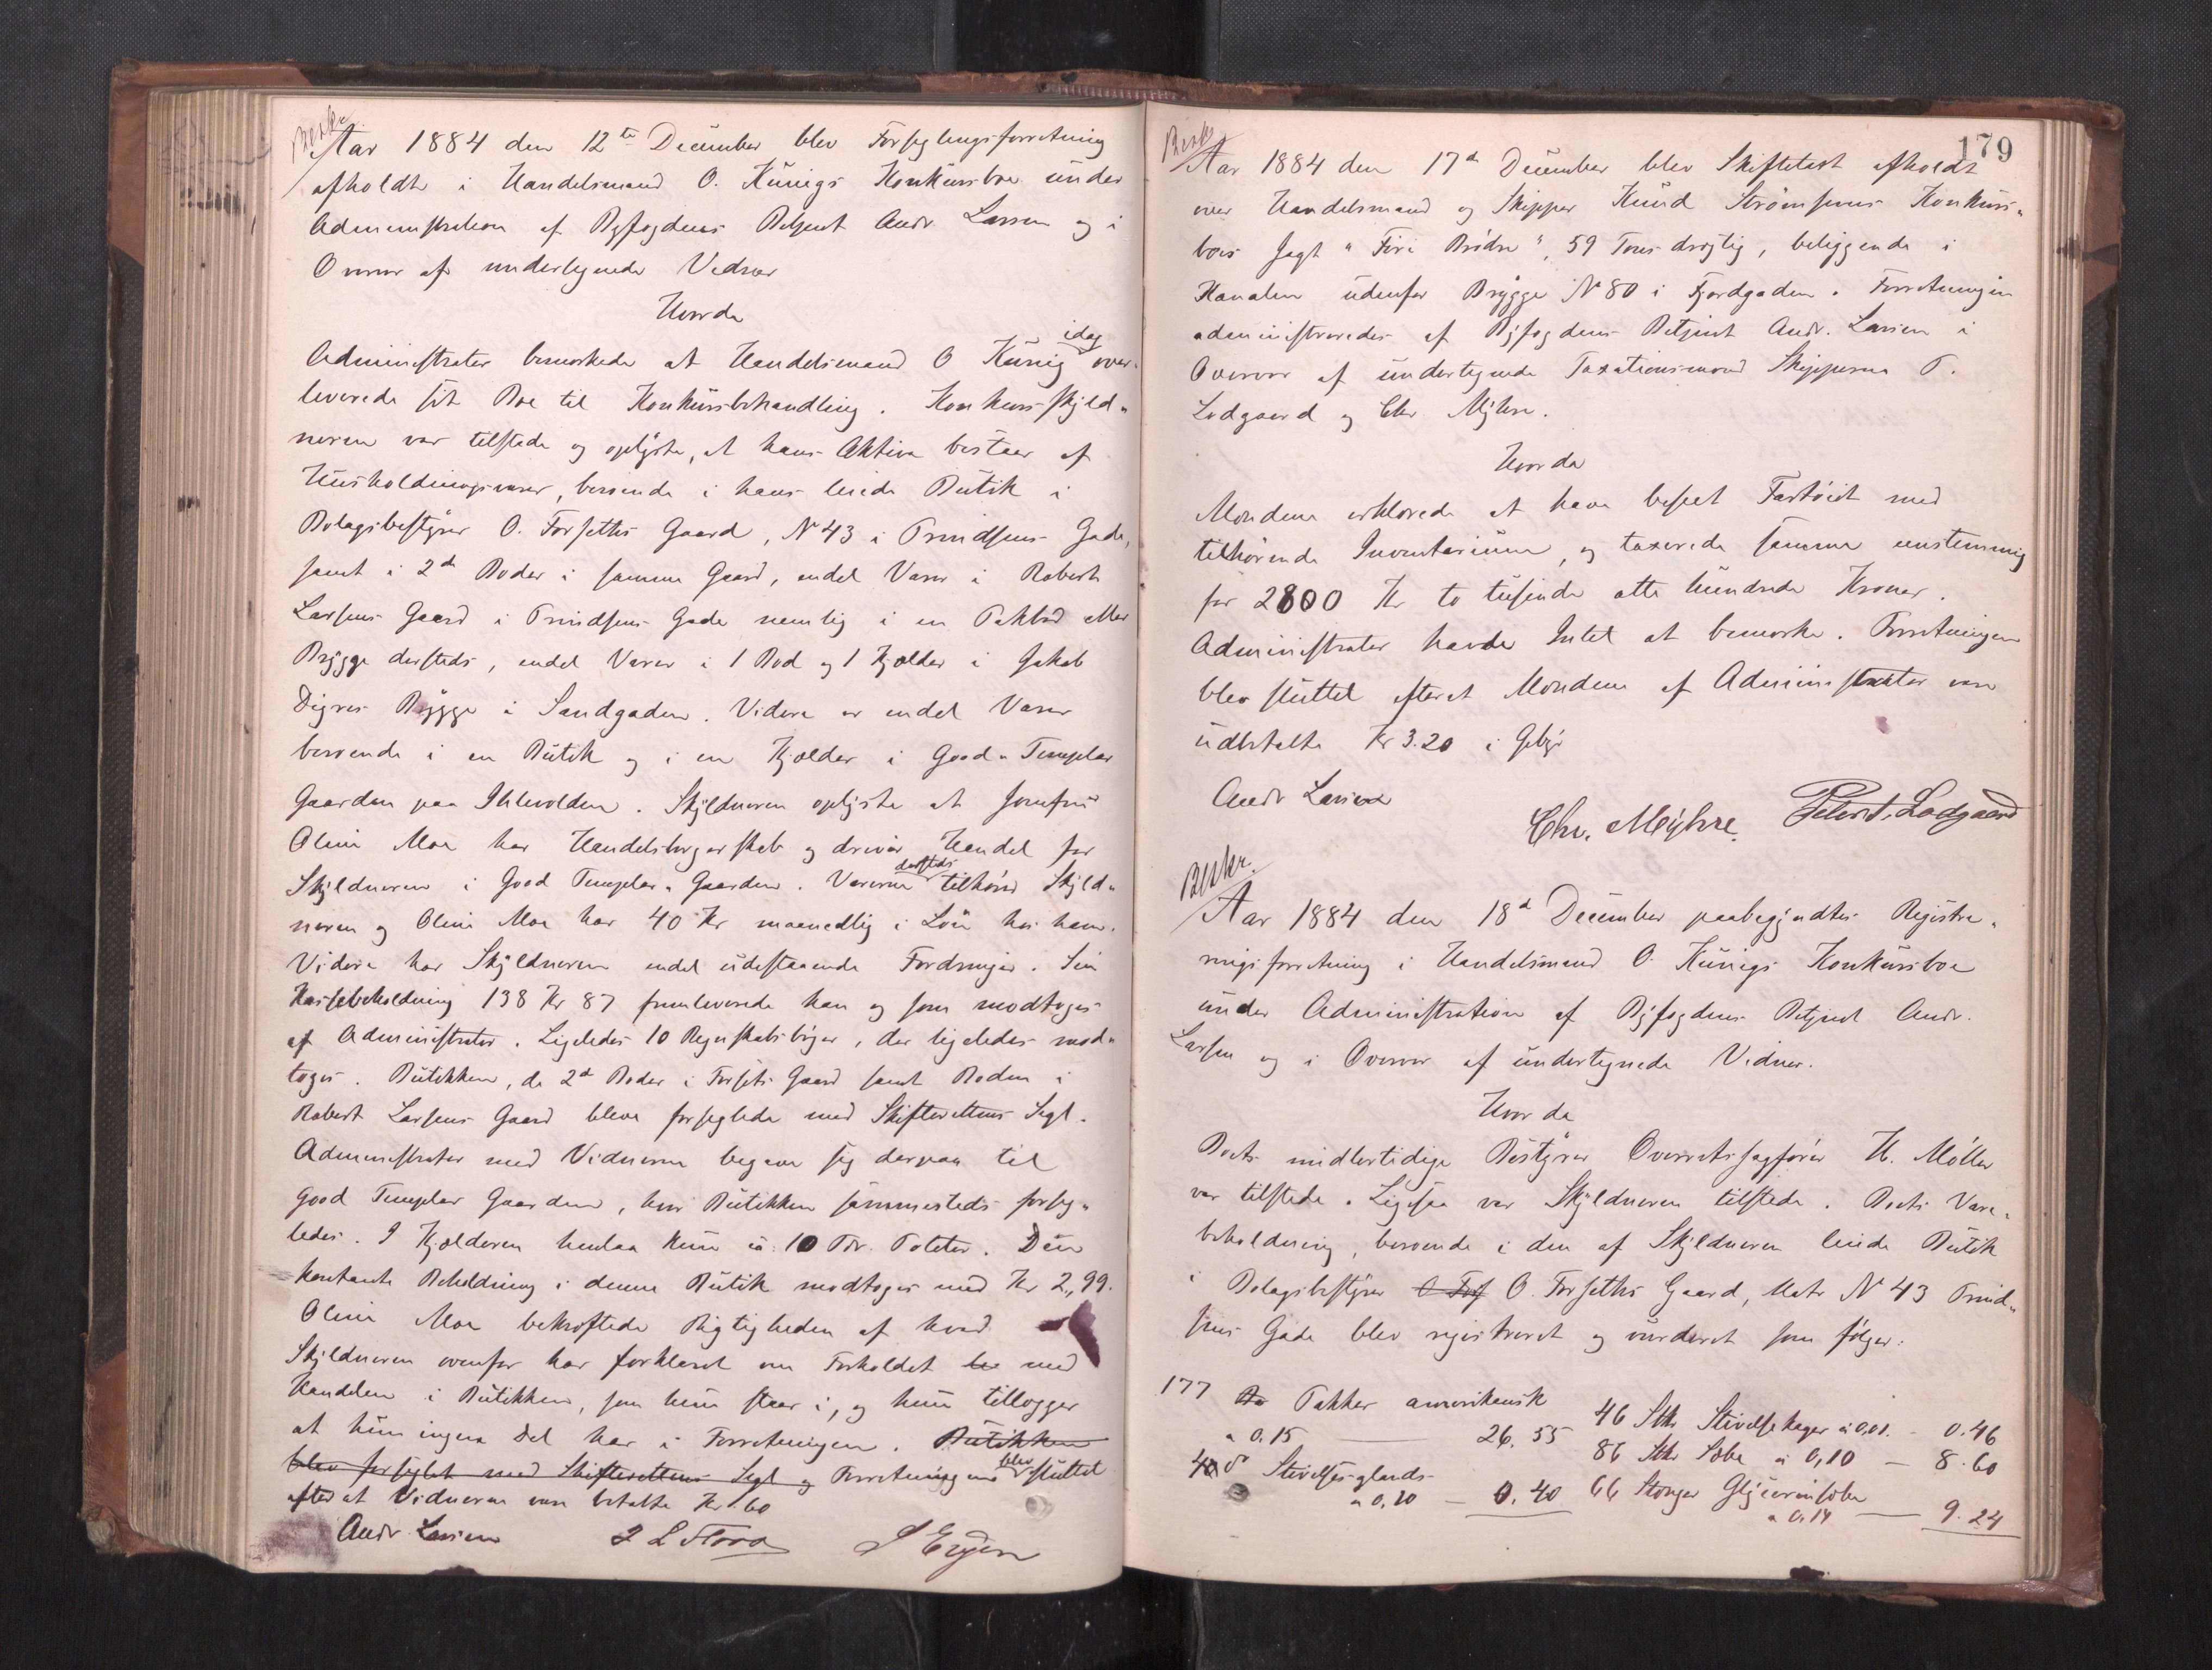 Beskr.
Aar 1884 den 12te December blev Forseglingsforretning
afholdt i Handelsmand O. Künigs Konkursboe under
Administration af Byfogdens Betjent Andr Larsen og i
Overvær af undertegnede Vidner
Hvorda
Administrator bemærkede at Handelsmand O Künig idag over-
leverede sit Boe til Konkursbehandling. Konkursskyld-
neren var tilstede og oplyste, at hans Aktiva bestaar af
Husholdningsvarer, beroende i hans leiede Butik i
Bolagsbestyrer O. Forseths Gaard, No 43 i Prindsens Gade,
samt i 2de Boder i samme Gaard, endel Varer i Robert
Larsens Gaard i Prindsens Gade nemlig i en Pakbod eller
Brygge dersteds, endel Varer i 1 Bod og 1 Kjælder i Jakob
Digres Brygge i Sandgaden. Videre er endel Varer
beroende i en Butik og i en Kjælder i Good-Templar
Gaarden paa Ihlevolden. Skyldneren oplyste at Jomfru
Oline Moe har Handelsborgerskab og driver Handel for
Skyldneren i Good Templar-Gaarden. Varerne dersteds tilhører Skyld-
neren og Oline Moe har 40 Kr maanedlig i Løn hos ham.
Videre har Skyldneren endel udestaaende Fordringer. Sin
Kassebeholdning 138 Kr 87 fremleverede han og som modtoges
af Administrator. Ligeledes 10 Regnskabsbøger, der ligeledes mod-
toges. Butikken, de 2de Boder i Forseths Gaard samt Boden i
Robert Larsens Gaard bleve forseglede med Skifterettens Segl.
Administrator med Vidnerne begave sig derpaa til
Good Templar Gaarden, hvor Butikken sammesteds forseg-
ledes. I Kjælderen henlaa kun ca: 10 Tdr. Poteter. Den
kontante Beholdning i denne Butik modtoges med Kr 2,99.
Oline Moe bekræftede Rigtigheden af hvad
Skyldneren ovenfor har forklaret om Forholdet be med
Handelen i Butikken, som hun staar i, og hun tillægger
at hun ingen Del har i Forretningen. Butikken
blev forseglet med Skifterettens Segl og Forretningen blev sluttet
efterat Vidnerne vare betalte Kr 60
Andr Larsen
179
Beskr
Aar 1884 den 17de December blev Skiftetaxt afholdt
over Handelsmand og Skipper Knud Strømsems Konkurs-
boes Jagt "Fire Brødre", 59 Tons drægtig, beliggende i
Kanalen udenfor Brygge No 80 i Fjordgaden. Forretningen
administreredes af Byfogdens Betjent Andr. Larsen i
Overvær af undertegnede Taxationsmænd Skipperne P.
Lodgaard og Chr Myhre.
Hvorda
Mændene erklærede at have beseet Fartøiet med
tilhørende Inventarium, og taxerede samme enstemmig
for 2800 Kr to tusinde otte hundrede Kroner.
Administrator havde Intet at bemærke. Forretningen
blev sluttet efterat Mændene af Administrator vare
udbetalte Kr 3.20 i Gebyr
Andr Larsen
Chr. Myhre. Peter Lodgaard
Beskr.
Aar 1884 den 18de December paabegyndtes Registre-
ringsforretning i Handelsmand O. Künigs Konkursboe
under Administration af Byfogdens Betjent Andr.
Larsen og i Overvær af undertegnede Vidner.
Hvorda
Boets midlertidige Bestyrer Overretssagfører H. Møller
var tilstede. Ligesaa var Skyldneren tilstede. Boets Vare-
beholdning, beroende i den af Skyldneren leiede Butik
i Bolagsbestyrer O Fos O. Forseths Gaard, Matr No 43 Prind-
sens Gade blev registreret og vurderet som følger:
177 Pakker amerikansk
a 0.15 26.55
40 do Stivelseglands
a 0.10 — 0.40
46 Stkr Stivelsekager a 0,01. - 0.46
86 Stkr Sæbe a 0,10 — 8.60
66 Stænger Glycerinsæbe
a 0,14 — 9.24